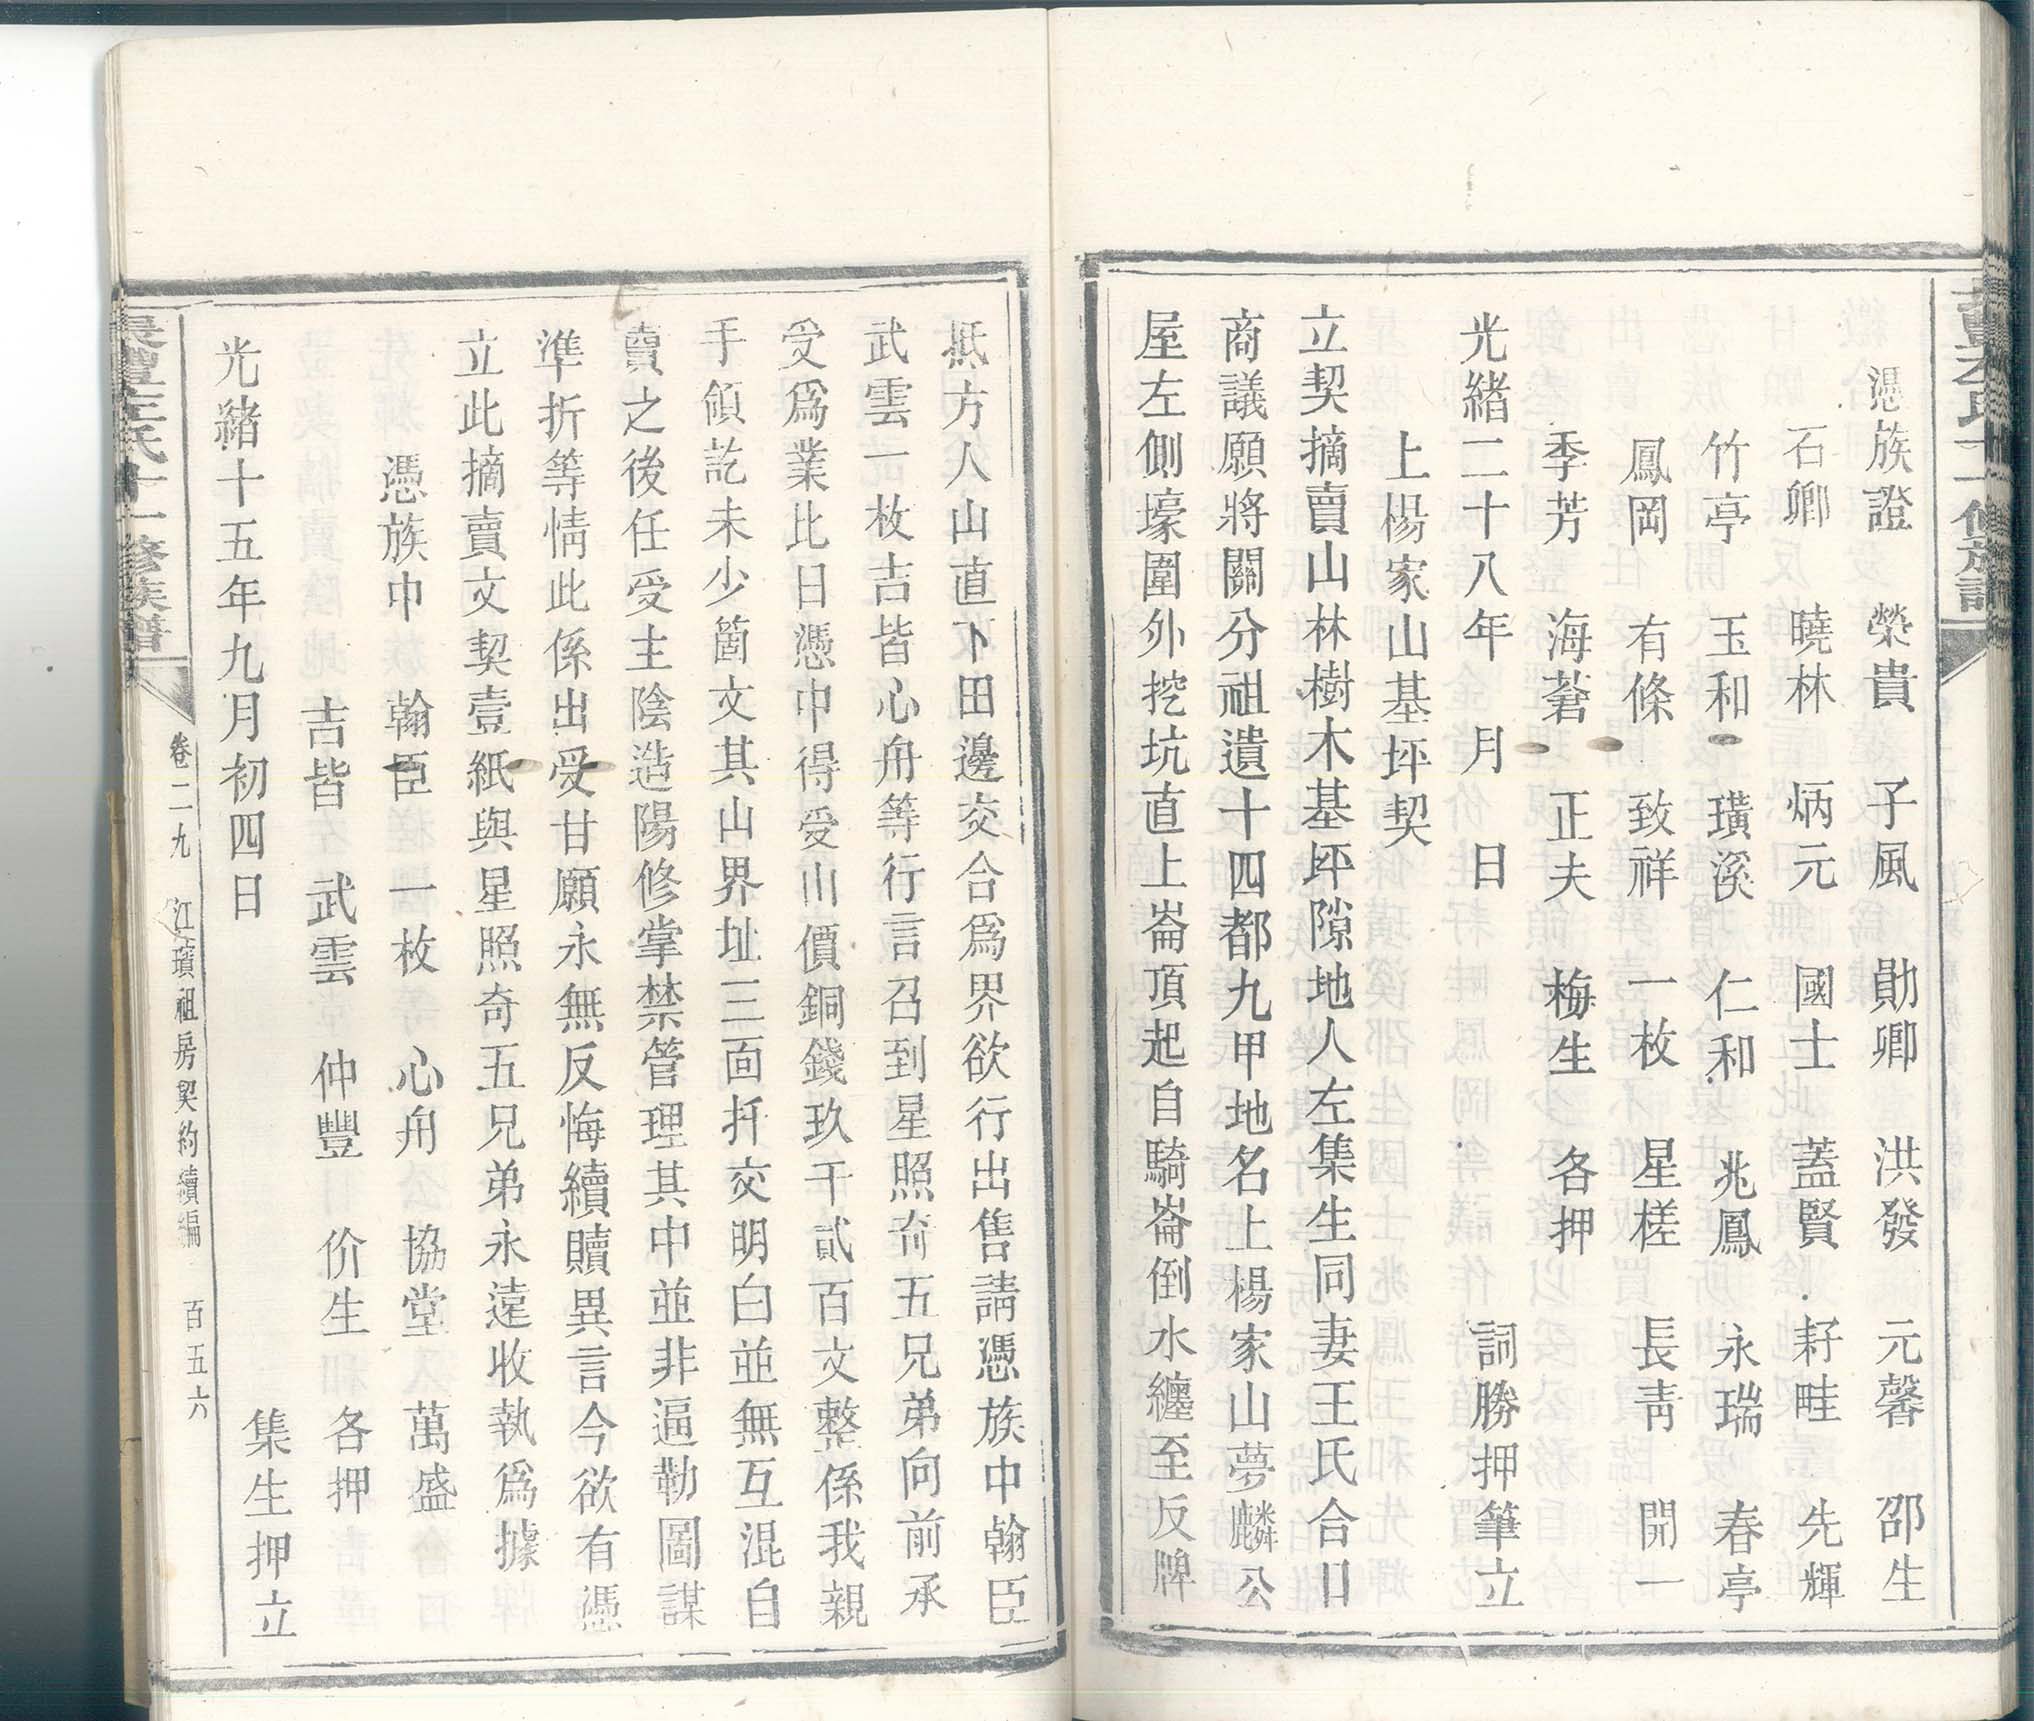 憑族證　榮貴　子風　勛卿　洪發　元馨　邵生
石卿　曉林　炳元　國士　蓋賢　耔畦　先輝
竹亭　玉和　璜溪　仁和　兆鳳　永瑞　春亭
鳳岡　有條　致祥　一枚　星槎　長靑　開一
季芳　海蒼　正夫　梅生　各押
光緒二十八年　月　日　詞勝押筆立
上楊家山基坪契
立契摘賣山林樹木基坪隙地人左集生同妻王氏合口
商議願將關分祖遺十四都九甲地名上楊家山夢麟公
屋左側壕圍外挖坑直上崙頂起自騎崙倒水纏至反牌
抵方人山直下田邊交合爲界欲行出售請憑族中翰臣
武雲一枚吉皆心舟等行言召到星照奇五兄弟向前承
受爲業比日憑中得受山價銅錢玖千貳百文整係我親
手領訖未少箇文其山界址三面扦交明白並無互混自
賣之後任受主陰造陽修掌禁管理其中並非逼勒圖謀
準折等情此係出受甘願永無反悔續贖異言今欲有憑
立此摘賣文契壹紙與星照奇五兄弟永遠收執爲據
憑族中　翰臣　一枚　心舟　協堂　萬盛
吉皆　武雲　仲豐　价生　各押
光緒十五年九月初四日　集生押立
左氏十一修族譜
卷二九　江璸祖房契約續編　百五六